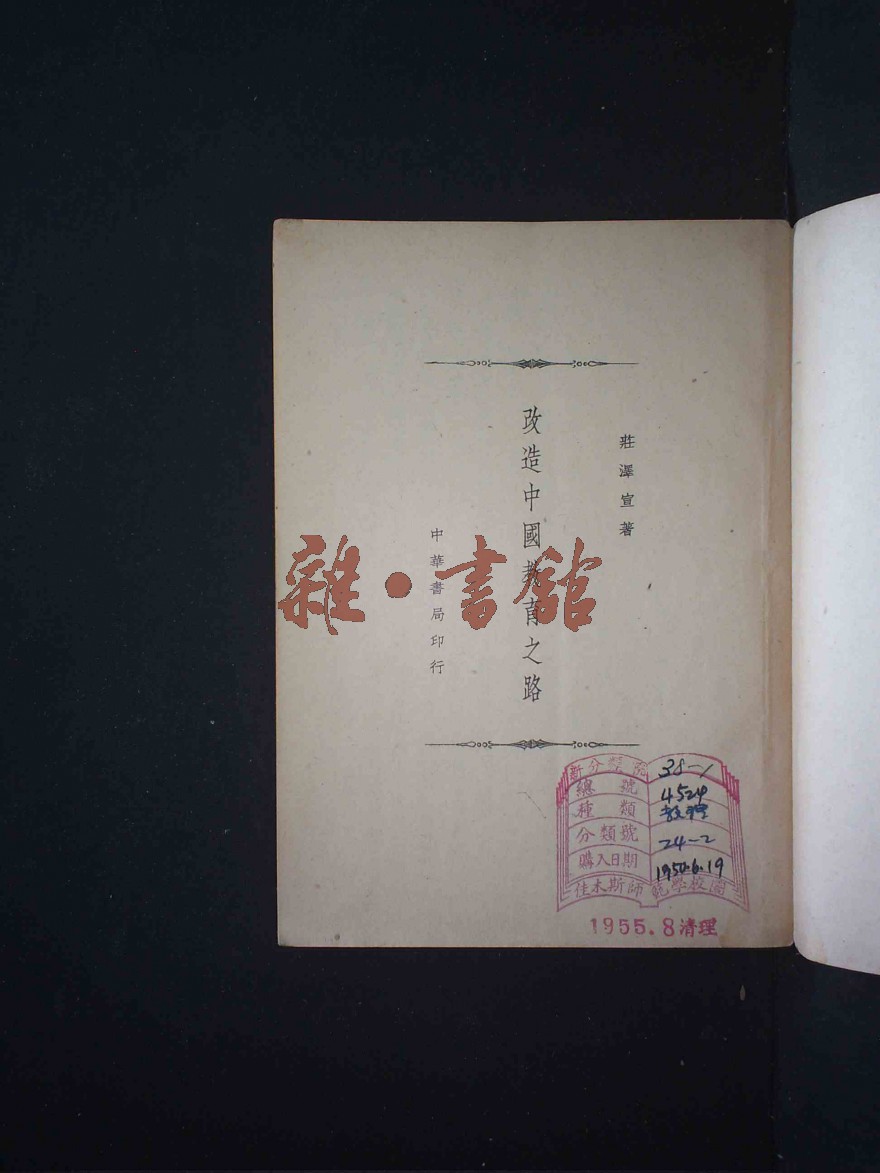 莊澤宣著
改造中國教育之路
中華書局印行
雜·書館
新分類號 38-1
總號 4524
種類 教理
分類號 24-2
購入日期 1950.6.19
佳木斯師範學校圖
1955.8清理